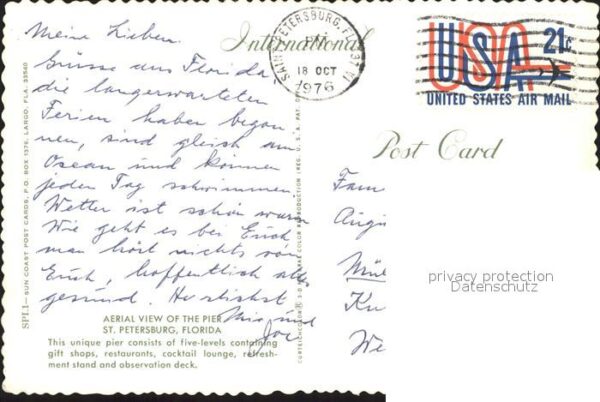 Meine Lieben.
Grüsse aus Florida
die langerwarteten
Ferien haben begon-
nen, sind gleich am
Ozean und können
jeden Tag schwimmen
Wetter ist schön warm
Wie geht es bei Euch,
man hört nichts von
Euch, hoffentlich alle
gesund. Herzlichst
und
Joe
AERIAL VIEW OF THE PIER
ST. PETERSBURG, FLORIDA
This unique pier consists of five-levels containing
gift shops, restaurants, cocktail lounge, refresh-
ment stand and observation deck.
SPL1—SUN COAST POST CARDS, P.O. BOX 1376, LARGO, FLA. 33540
International
Post Card
SAINT PETERSBURG, FL
18 OCT
1976
USA 21c
UNITED STATES AIR MAIL
Fam
Mül
We
privacy protection
Datenschutz